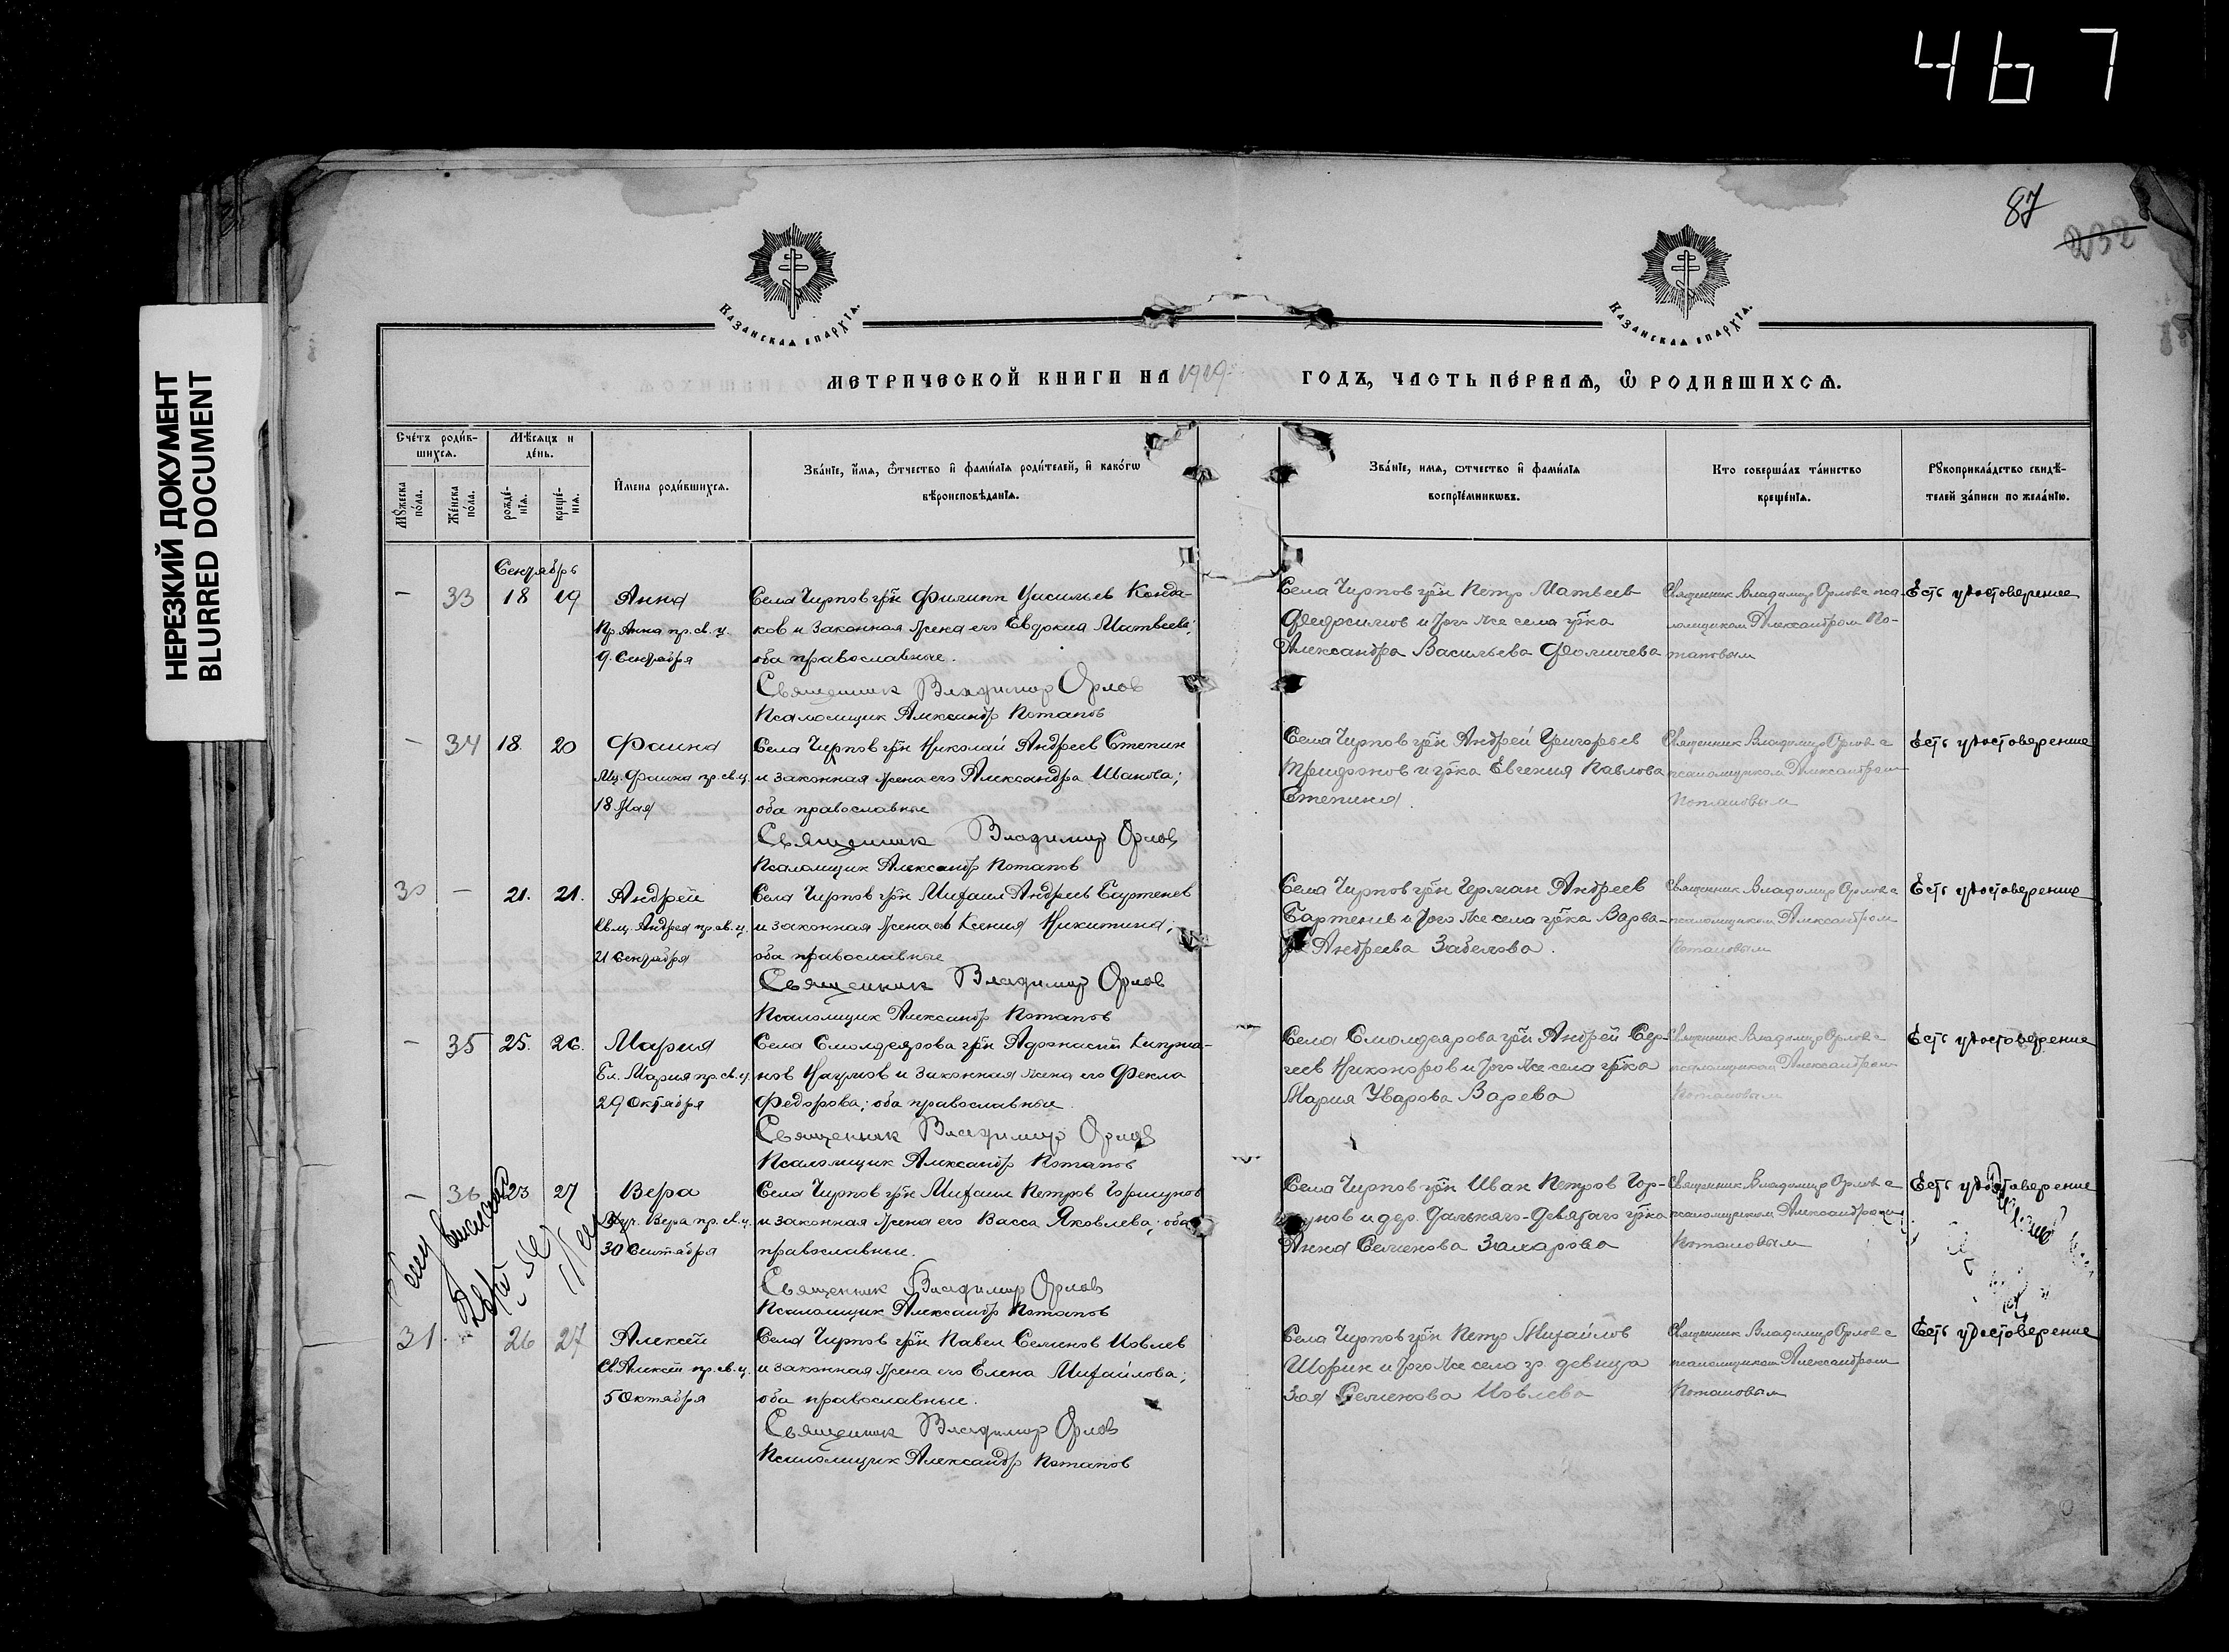 467
87
232
НЕРЕЗКИЙ ДОКУМЕНТ
BLURRED DOCUMENT
Казанская епархїѧ.
Казанская епархїѧ.
МЕТРИЧЕСКОЙ КНИГИ НА 1919
ГОДЪ, ЧАСТЬ ПЕ́РВАѦ, Ѽ РОДИВШИХСѦ.
Сче́тъ роди́в-
шихсѧ.
Мѣ́сѧцъ и
де́нь.
Мꙋ́жеска
по́ла.
Же́нска
по́ла.
рожде́-
нїѧ.
креще́-
нїѧ.
И҆мена роди́вшихсѧ.
Зва́нїе, и҆́мѧ, ѻ҆́тчество и҆ фами́лїѧ роди́телей, и҆ како́гѡ
вѣроисповѣ́данїѧ.
Зва́нїе, имѧ, ѡтчество и҆ фами́лїѧ
воспрїе́мникѡвъ.
Кто соверша́лъ та́инство
креще́нїѧ.
Рꙋкоприкла́дство свидѣ́-
телей за́писи по жела́нїю.
Сентябрь
- 33 18 19 Анна
Пр. Анна пр. св. ц.
9. Сентября
Села Чирпов гр̃н Филипп Васильев Конда-
ков и законная жена его Евдокия Матвеева;
оба православные.
Священник Владимир Орлов
Псаломщик Александр Потапов
Села Чирпов гр̃н Петр Матвеев
Федосилов и того же села гр̃ка
Александра Васильева Фомичева
Священник Владимир Орлов с пса-
ломщиком Александром По-
таповым
Есть удостоверение
- 34 18. 20 Фаина
Мц. Фаина пр. св. ц.
18 Мая
Села Чирпов гр̃н Николай Андреев Степин
и законная жена его Александра Иванова;
оба православные
Священник Владимир Орлов
Псаломщик Александр Потапов
Села Чирпов гр̃н Андрей Григорьев
Трифонов и гр̃ка Евгения Павлова
Степина.
Священник Владимир Орлов с
псаломщиком Александром
Потаповым
Есть удостоверение
30 - 21. 21. Андрей
Св. м. Андрея пр. св. ц.
21 Сентября
Села Чирпов гр̃н Михаил Андреев Бартенев
и законная жена его Ксения Никитина;
оба православные
Священник Владимир Орлов
Псаломщик Александр Потапов
Села Чирпов гр̃н Герман Андреев
Бартенев и того же села гр̃ка Варва-
ра Андреева Забелова.
Священник Владимир Орлов с
псаломщиком Александром
Потаповым
Есть удостоверение
- 35 25. 26. Мария
Бл. Мария пр. св. ц.
29 Октября
Села Смолдеярова гр̃н Афонасий Киприа-
нов Наумов и законная жена его Фекла
Федорова; оба православные
Священник Владимир Орлов
Псаломщик Александр Потапов
Села Смолдеярова гр̃н Андрей Сер-
геев Никоноров и того же села гр̃ка
Мария Уварова Варева
Священник Владимир Орлов с
псаломщиком Александром
Потаповым
Есть удостоверение
- 36 23 27 Вера
Муч. Вера пр. св. ц.
30 Сентября
Села Чирпов гр̃н Михаил Петров Горшунов
и законная жена его Васса Яковлева; оба
православные.
Священник Владимир Орлов
Псаломщик Александр Потапов
Села Чирпов гр̃н Иван Петров Гор-
шунов и дер. Дальняго-Девятаго гр̃ка
Анна Семенова Захарова
Священник Владимир Орлов с
псаломщиком Александром
Потаповым
Есть удостоверение
31. 26 27 Алексей
Св. Алексей пр. св. ц.
5 Октября
Села Чирпов гр̃н Павел Семенов Иовлев
и законная жена его Елена Михайлова;
оба православные.
Священник Владимир Орлов
Псаломщик Александр Потапов
Села Чирпов гр̃н Петр Михайлов
Шорин и того же села гр. девица
Зоя Семенова Иовлева
Священник Владимир Орлов с
псаломщиком Александром
Потаповым
Есть удостоверение